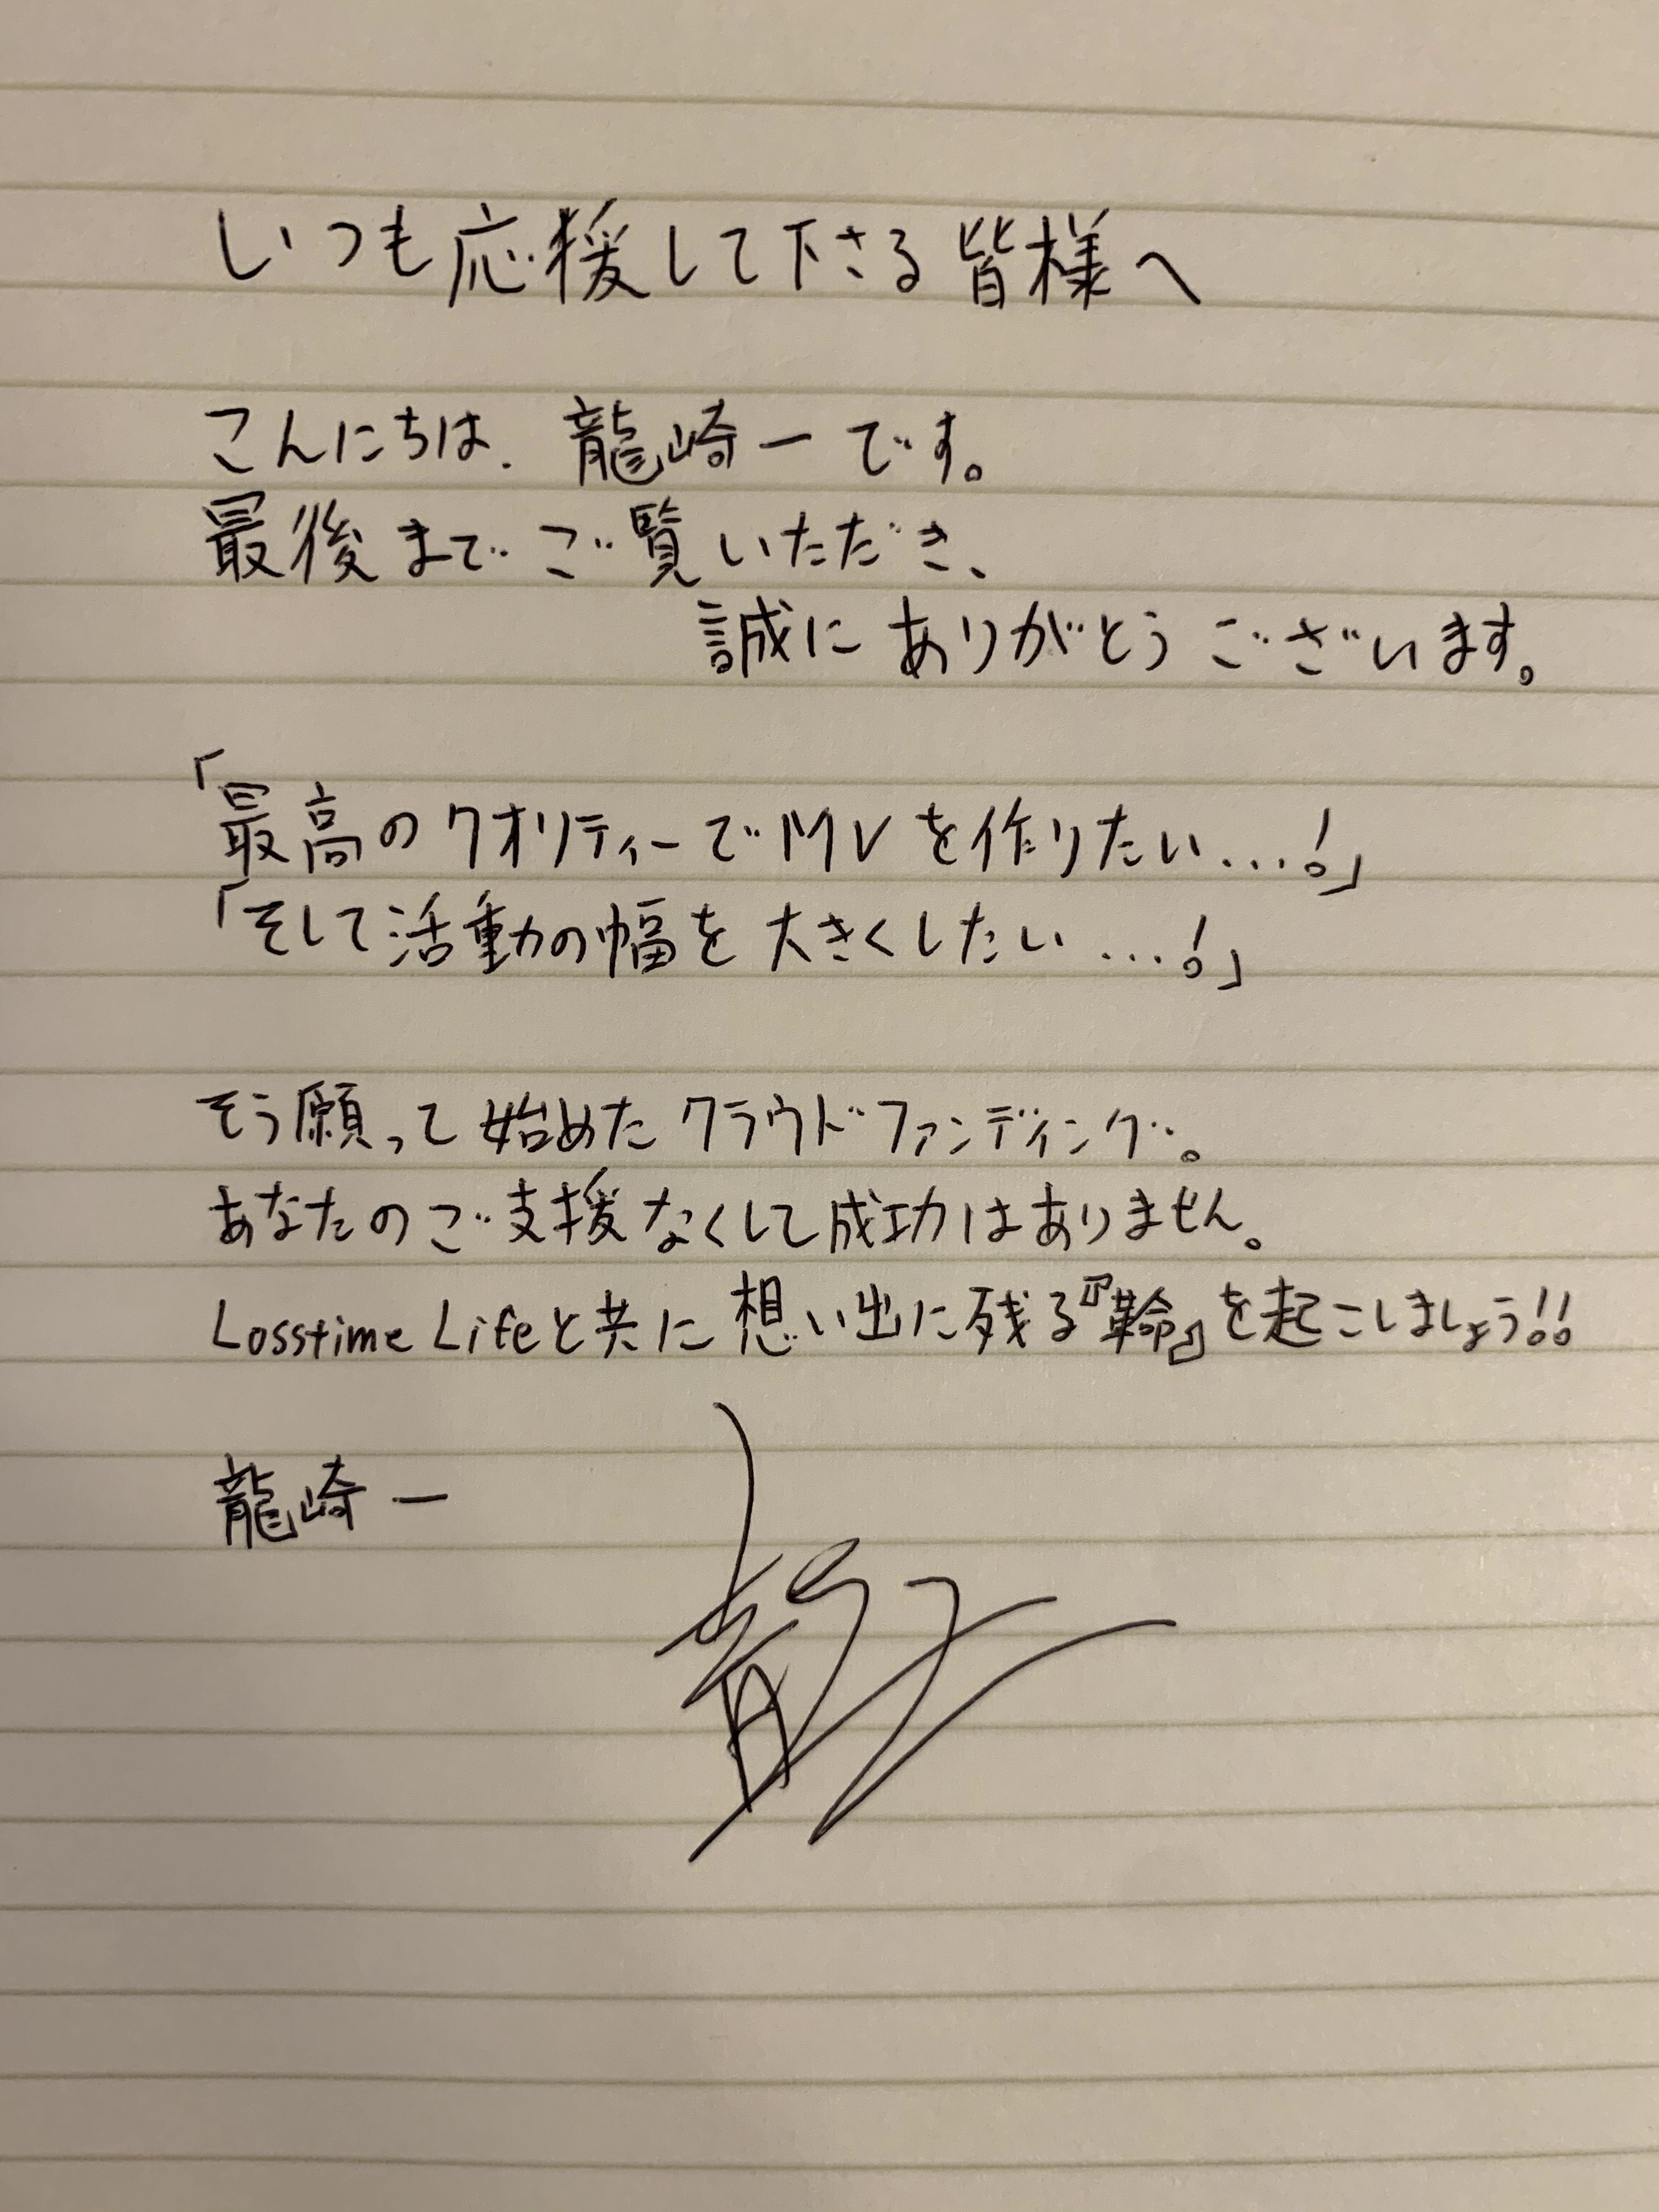 いつも応援して下さる皆様へ
こんにちは、龍崎一です。
最後までご覧いただき、
誠にありがとうございます。
「最高のクオリティーでMVを作りたい...!」
「そして活動の幅を大きくしたい...!」
そう願って始めたクラウドファンディング。
あなたのご支援なくして成功はありません。
Losstime Lifeと共に想い出に残る『革命』を起こしましょう!!
龍崎一